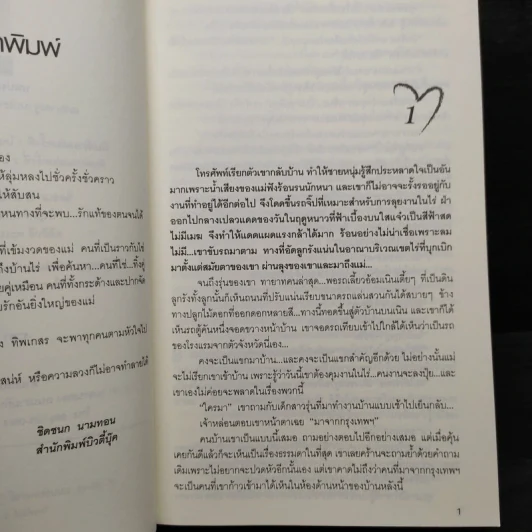 าพิมพ์
อง
ห้ลุ่มหลงไปชั่วครั้งชั่วคราว
ให้สับสน
หนทางที่จะพบ...รักแท้ของตนจนได้
ที่เข้มงวดของแม่ คนที่เป็นราวกับไร่
ถึงบ้านไร่ เพื่อค้นหา...คนที่ใช่...ทั้งคู่
ยคู่เหมือน คนที่ทั้งกระด้างและปากจัด
ยรักอันยิ่งใหญ่ของแม่
ง ทิพเกสร จะพาทุกคนตามหัวใจไป
สน่ห์ หรือความลวงก็ไม่อาจทำลายได้
ชิตชนก นามทอน
สำนักพิมพ์บิวตี้บุ๊ค
1
โทรศัพท์เรียกตัวเขากลับบ้าน ทำให้ชายหนุ่มรู้สึกประหลาดใจเป็นอัน
มากเพราะน้ำเสียงของแม่ฟังร้อนรนนักหนา และเขาก็ไม่อาจจะรั้งรออยู่กับ
งานที่ทำอยู่ได้อีกต่อไป จึงโดดขึ้นรถจี๊ปที่เหมาะสำหรับการลุยงานในไร่ ฝ่า
ออกไปกลางเปลวแดดของวันในฤดูหนาวที่ฟ้าเบื้องบนใสแจ๋วเป็นสีฟ้าสด
ไม่มีเมฆ จึงทำให้แดดแผดแรงกล้าได้มาก ร้อนอย่างไม่น่าเชื่อเพราะลม
ไม่มี...เขาขับรถมาตาม ทางที่อัดลูกรังแน่นในอาณาบริเวณเขตไร่ที่บุกเบิก
มาตั้งแต่สมัยตาของเขา ผ่านลุงของเขาและมาถึงแม่...
จนถึงรุ่นของเขา ทายาทคนล่าสุด...พอรถเลี้ยวอ้อมเนินเตี้ยๆ ที่เป็นดิน
ลูกรังทั้งลูกนั้นก็เห็นถนนที่ปรับแน่นเรียบขนาดรถแล่นสวนกันได้สบายๆ ข้าง
ทางปลูกไม้ดอกที่ออกดอกหลายสี...ทางนี้ทอดขึ้นสู่ตัวบ้านบนเนิน และเขาก็
เห็นรถตู้คันหนึ่งจอดขวางหน้าบ้าน เขาจอดรถเทียบเข้าไปใกล้ได้เห็นว่าเป็นรถ
ของโรงแรมจากตัวจังหวัดนี่เอง...
คงจะเป็นแขกมาบ้าน...และคงจะเป็นแขกสำคัญอีกด้วย ไม่อย่างนั้นแม่
จะไม่เรียกเขาเข้าบ้าน เพราะรู้ว่าวันนี้เขาต้องคุมงานในไร่...คนงานจะลงปุ๋ย...และ
เขาเองไม่ค่อยจะพลาดในเรื่องพวกนี้
“ใครมา” เขาถามกับเด็กสาวรุ่นที่มาทำงานบ้านแบบเช้าไปเย็นกลับ...
เจ้าหล่อนตอบเขาหน้าตาเฉย “มาจากกรุงเทพฯ”
คนบ้านเขาเป็นแบบนี้เสมอ ถามอย่างตอบไปอีกอย่างเสมอ แต่เมื่อคุ้น
เคยกันดีแล้วก็จะเห็นเป็นเรื่องธรรมดาในที่สุด เขาเลยคร้านจะถามย้ำด้วยคำถาม
เดิมเพราะไม่อยากจะปวดหัวอีกนั่นเอง แต่เขาคาดไม่ถึงว่าคนที่มาจากกรุงเทพฯ
จะเป็นคนที่เขาก้าวเข้ามาได้เห็นในห้องด้านหน้าของบ้านหลังนี้
1